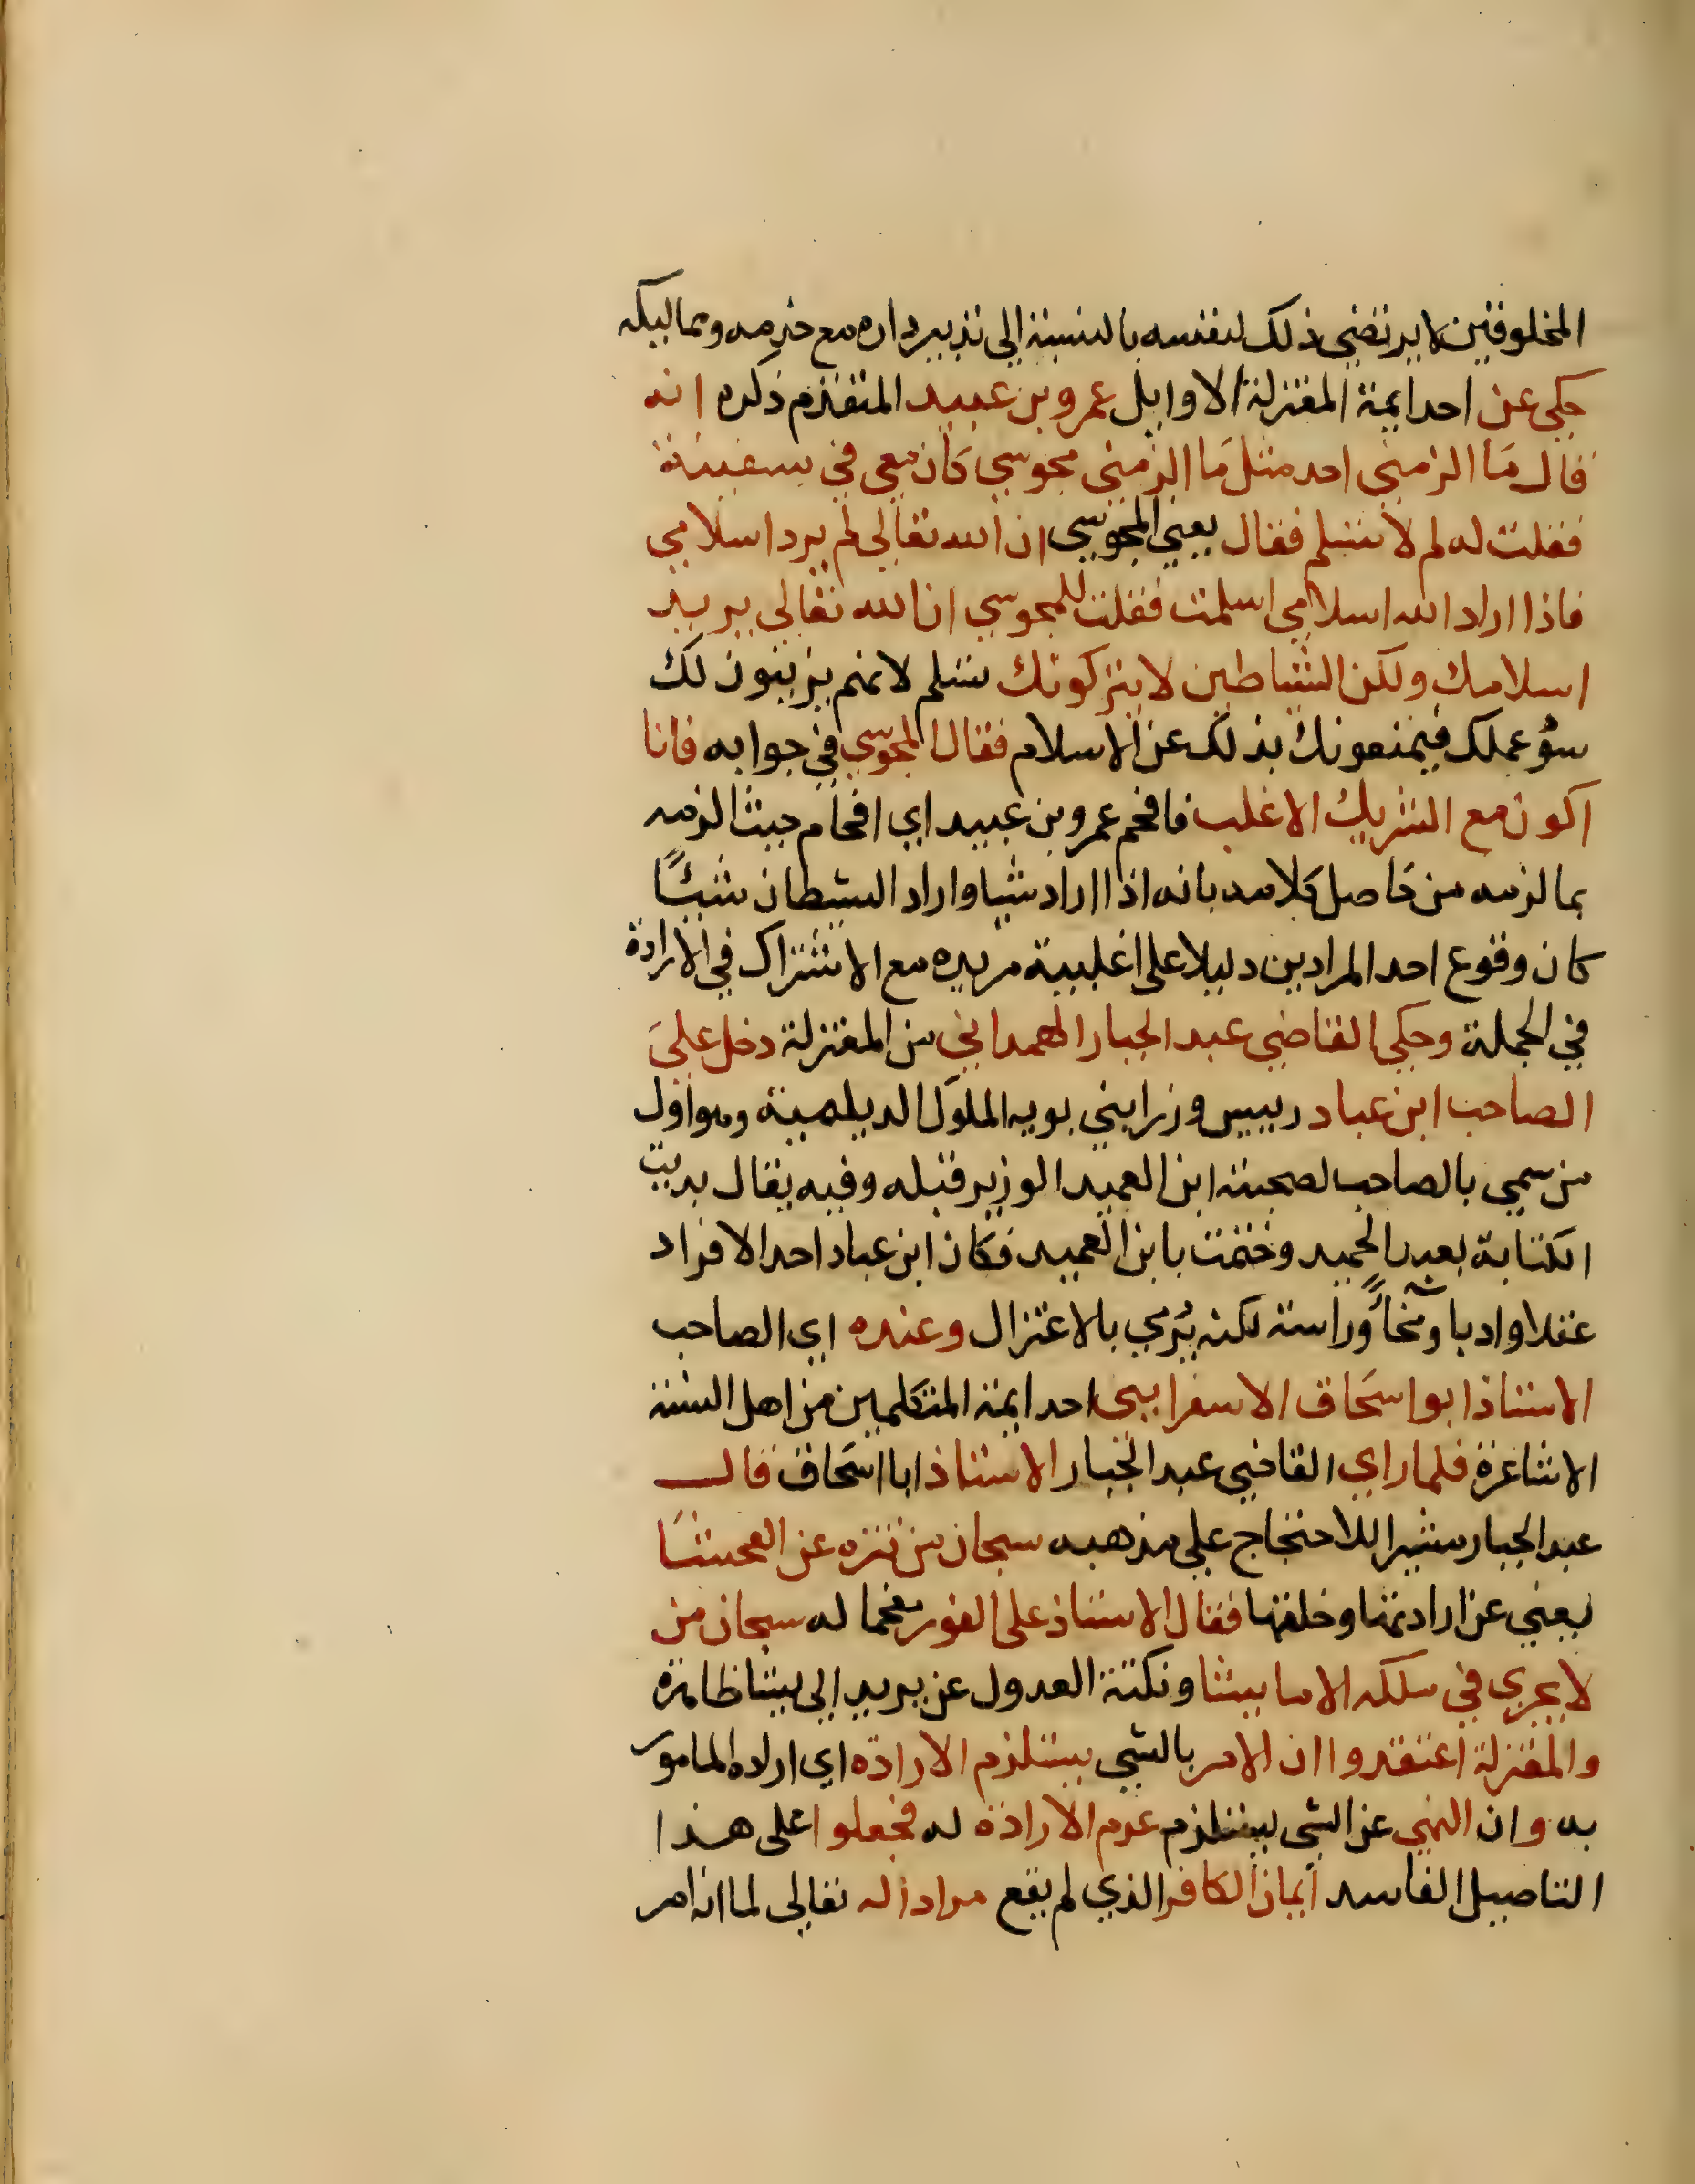 المخلوقين لا يرتضي ذلك لنفسه بالنسبة الي تدبير داره مع خدمه ومماليكه
حكي عن احد ايمة المعتزلة الاوايل عمرو بن عبيد المتقدم ذكره انه
قال ما الزمني احد مثل ما الزمني مجوسي كان معي في سفينة
فقلت له لم لا تسلم فقال يعني المجوسي ان الله تعالي لم يرد اسلامي
فاذا اراد الله اسلامي اسلمت فقلت للمجوسي ان الله تعالي يريد
اسلامك ولكن الشياطين لا يتركونك تسلم لانهم يزينون لك
سوُ عملك فيمنعونك بذلك عن الاسلام فقال المجوسي في جوابه فانا
اكون مع الشريك الاغلب فافحم عمرو بن عبيد اي افحام حيث الزمه
بما لزمه من حاصل كلامه بانه اذا اراد شيا واراد الشيطان شيئًا
كان وقوع احد المرادين دليلا علي اغلبية مريده مع الاشتراك في الارادة
في الجملة وحكي القاضي عبد الجبار الهمداني من المعتزلة دخل علي
الصاحب ابن عباد رييس وزرا بني بويه الملوك الديلمية وهو اول
من سمي بالصاحب لصحبته ابن العميد الوزير قبله وفيه يقال بديت
الكتابة بعبد الحميد وختمت بابن العميد فكان ابن عباد احد الافراد
عقلا وادبا وسخاً وراسة لكنه يُرمي بالاعتزال وعنده اي الصاحب
الاستاذ ابو اسحاق الاسفرايني احد ايمة المتكلمين من اهل السنة
الاشاعرة فلما راي القاضي عبد الجبار الاستاذ ابا اسحاق قال
عبد الجبار مشيرا للاحتجاج علي مذهبه سبحان من تنزه عن الفحشا
يعني عن ارادتها وخلقها فقال الاستاذ علي الفور مفحما له سبحان من
لا يجري في ملكه الا ما يشا ونكتة العدول عن يريد الي يشا ظاهرة
والمعتزلة اعتقدوا ان الامر بالشي يستلزم الارادة اي ارادة المامور
به وان النهي عن الشي يستلزم عدم الارادة له فجعلوا علي هذا
التاصيل الفاسد ايمان الكافر الذي لم يقع مرادا له تعالي لما انه امر